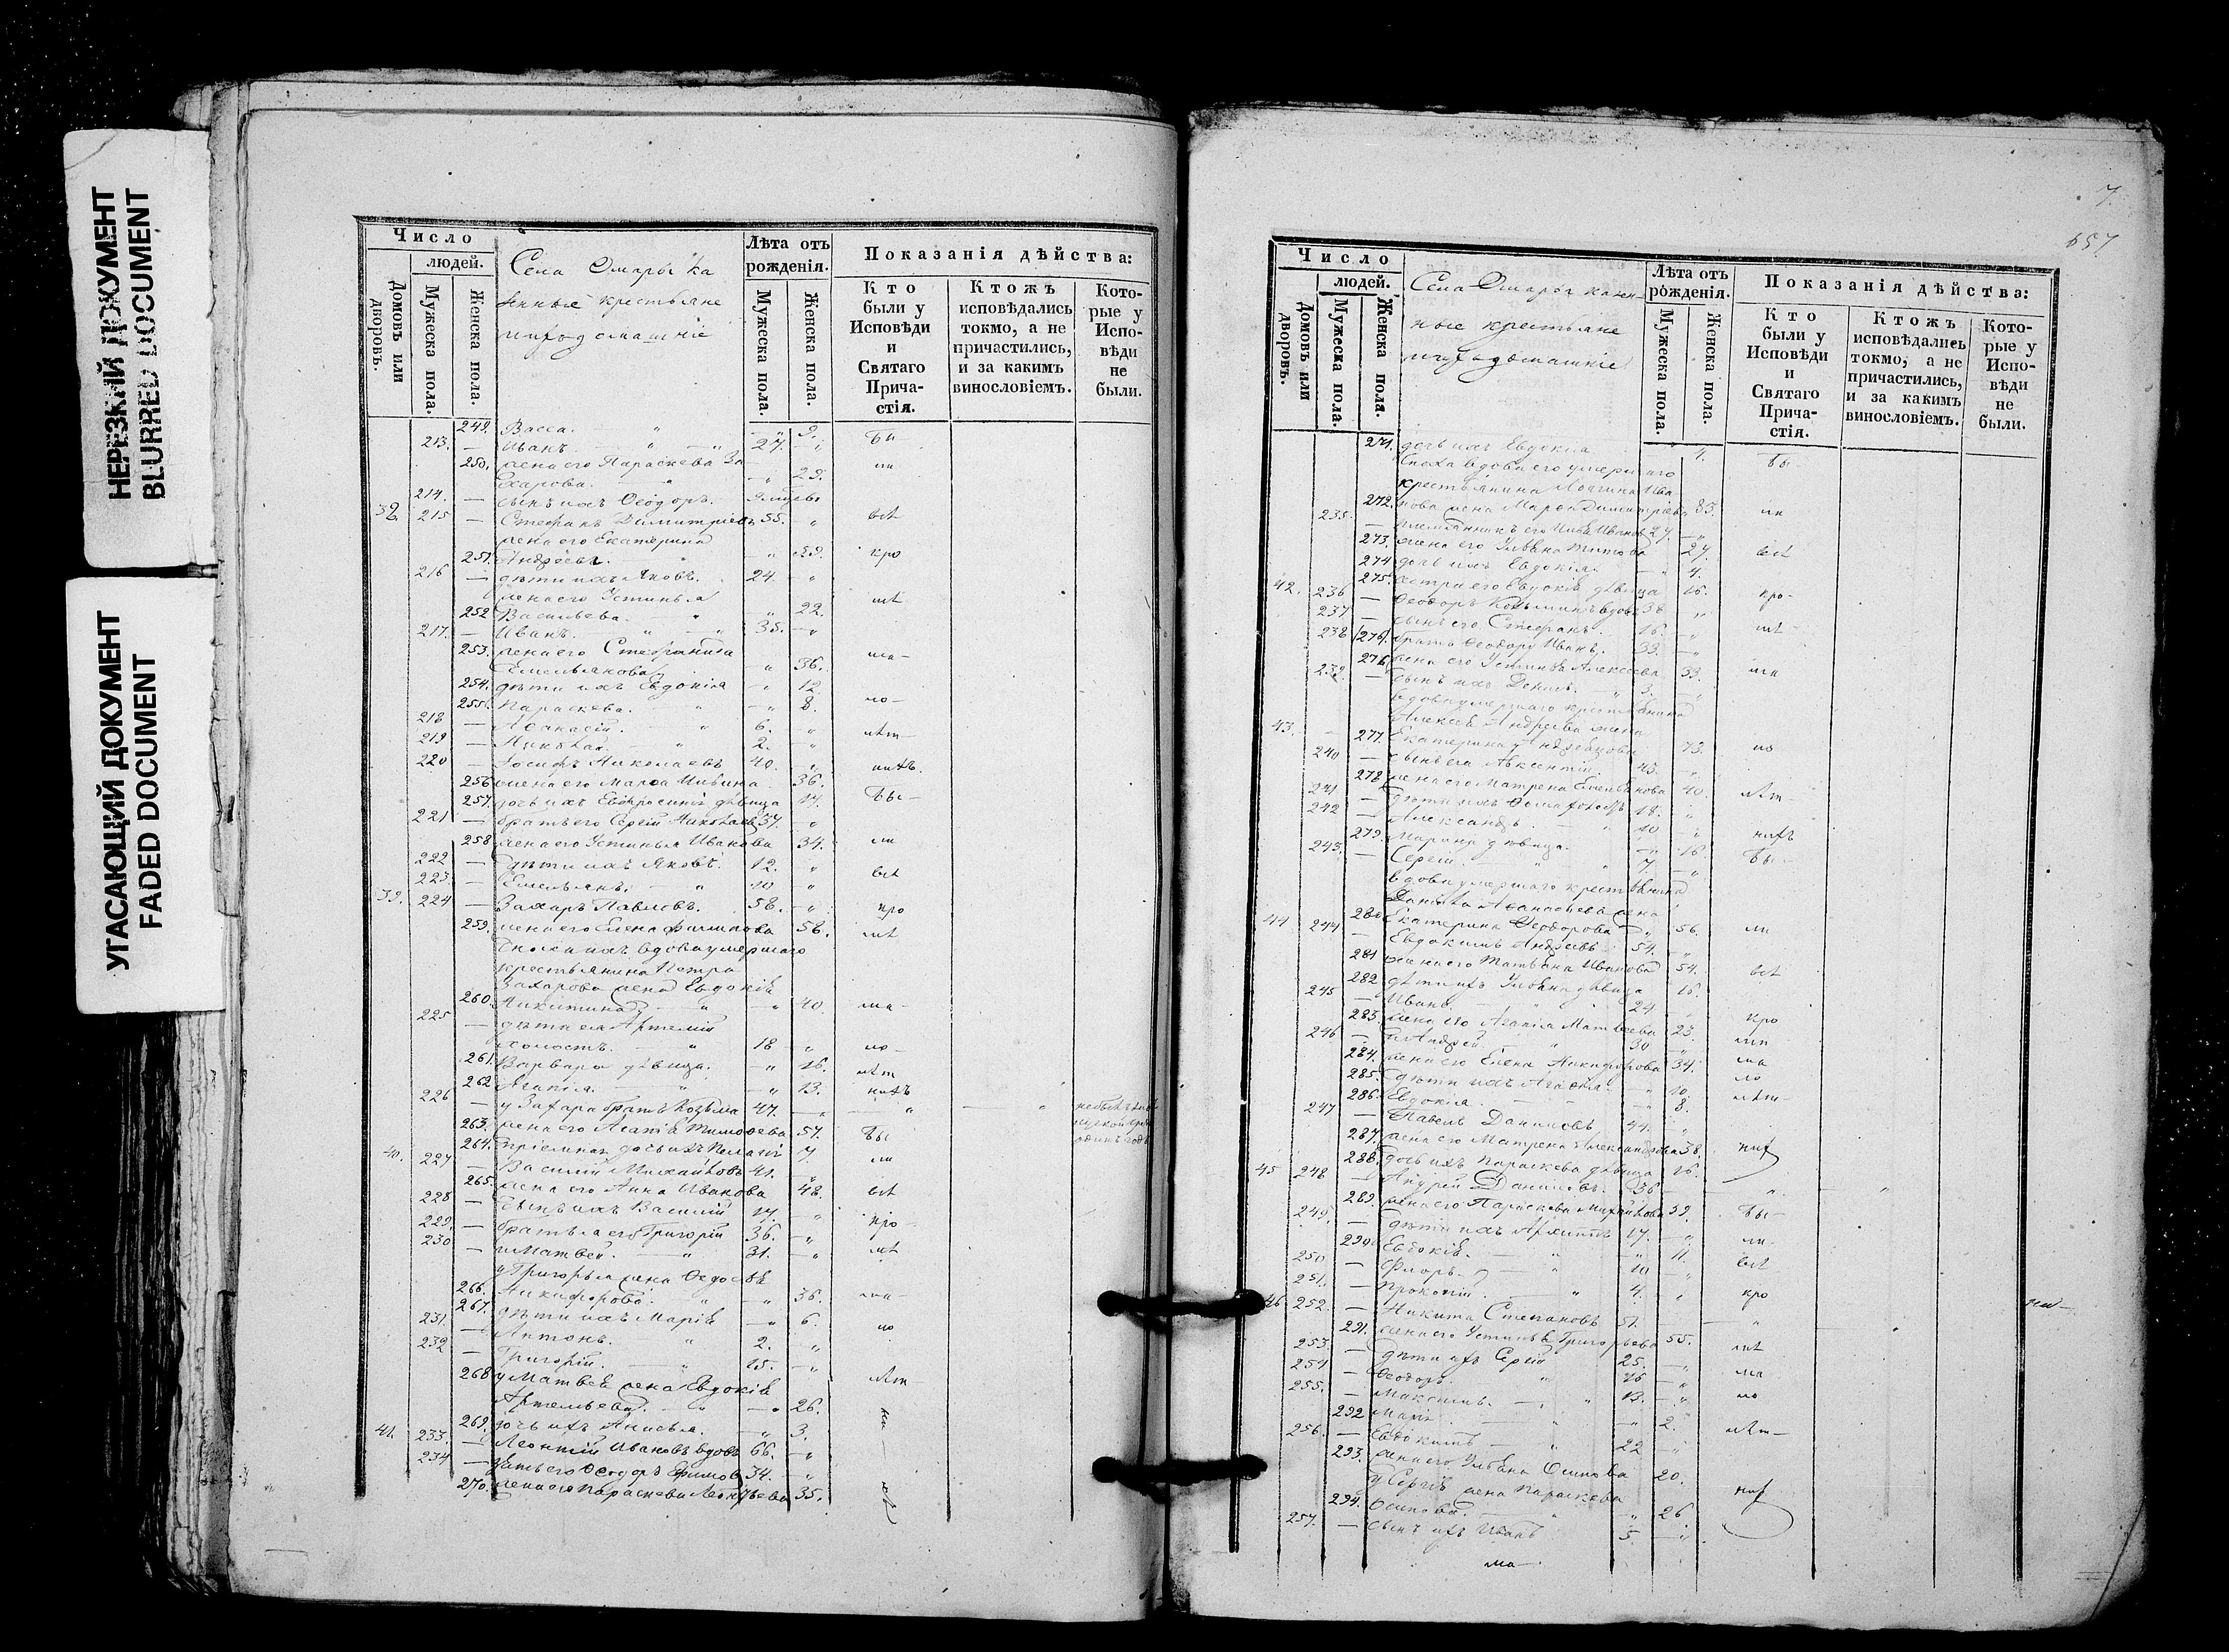 НЕРЕЗКИЙ ДОКУМЕНТ
BLURRED DOCUMENT
УГАСАЮЩИЙ ДОКУМЕНТ
FADED DOCUMENT
Число
людей.
Домовъ или дворовъ.
Мужеска пола.
Женска пола.
Села Омары ка
енные крестьяне
Лѣта отъ рожденія.
Мужеска пола.
Женска пола.
Показанія дѣйства:
Кто были у Исповѣди и Святаго Причастія.
Ктожъ исповѣдались токмо, а не причастились, и за какимъ винословіемъ.
Которые у Исповѣди не были.
249. Васса. " 9.
213. — Иванъ. " 27. Бы
250. жена его Параскева За
харова. " 29. ли
214. — сынъ ихъ Ѳеодоръ.
38. 215 — Стефанъ Димитріевъ 55. " всѣ
жена его Екатерина
251. Андреева. "
кро
216 — дѣти ихъ Яковъ. 24. "
жена его Устинья
252 Васильева. " 22.
217. — Иванъ. " 35. "
253. жена его Стефанида
Емельянова " 36. ша-
254. дѣти ихъ Евдокія " 12
255. Параскева. " 8. но-
218 — Аѳанасій. " 6. "
219 — Николай. " 2. "
220 — Іосифъ Николаевъ 40. "
256 жена его Марѳа Ильина 36.
257. дочь ихъ Евфросинія дѣвица 17. Бы-
221 — братъ его Сергій Николаевъ 37. "
258 жена его Устинья Иванова 34. ли
222 — дѣти ихъ Яковъ. 12. "
223. — Емельянъ. " 10 " всѣ
39. 224 — Захаръ Павловъ. 58. " кро
259. жена его Елена Филипова 56.
Сноха ихъ вдова умершаго
крестьянина Петра
Захарова жена Евдокія
260. Никитина " 40. ша-
225 — дѣти ея Артемій
холостъ. " 18 " но-
261. Варвара дѣвица. " 16.
262 Агапія. " 13.
226 — у Захара братъ Козьма 47. "
263. жена его Агапія Тимоѳеева 57. Бы
264. пріемная дочь ихъ Пелагія 7.
40. 227 — Василій Михайловъ 41. " ли
265. жена его Анна Иванова 48. всѣ
228 — сынъ ихъ Василій 17. "
229. — братья его Григорій 36. " кро-
230 — и Матвей. " 31. "
у Григорья жена Ѳедосья
266. Никифорова. " 36. ша-
267. дѣти ихъ Марія " 6.
231. — Антонъ. " 2. " но
232 — Григорій. " 15. "
268 у Матвея жена Евдокія
Артемьева. " 26.
269. дочь ихъ Анисья. " 3.
41. 233. — Леонтій Ивановъ вдовъ 66. "
234 — зять его Ѳеодоръ Ефимовъ 34. "
270. жена его Параскева Леонтьева 35.
7.
657
Число
людей.
Домовъ или дворовъ.
Мужеска пола.
Женска пола.
Села Омары казен-
ные крестьяне
Лѣта отъ рожденія.
Мужеска пола.
Женска пола.
Показанія дѣйства:
Кто были у Исповѣди и Святаго Причастія.
Ктожъ исповѣдались токмо, а не причастились, и за какимъ винословіемъ.
Которые у Исповѣди не были.
271. дочь ихъ Евдокія 4. Бы
Сноха вдова его умершаго
крестьянина Логина Ива
272. нова жена Марѳа Димитріева 33. ли
235. — племянникъ его Илья Ивановъ 27. "
273. жена его Ульяна Титова 27. всѣ
274 дочь ихъ Евдокія. 4.
275. сестра его Евдокія дѣвица 16. кро-
42. 236 — Ѳеодоръ Козьминъ вдовъ 38 "
237 — сынъ его Стефанъ. 16. "
238 братъ Ѳеодору Иванъ. 33. "
276 жена его Устинья Алексеева 33.
239. — сынъ ихъ Денисъ. 3. "
вдова умершаго крестьянина
Алексея Андреева жена
43. 277. Екатерина Андреянова 73. но
240 — сынъ ея Авксентій 43. "
278 жена его Матрена Емельянова 40.
241 — дѣти ихъ Ѳома холостъ 18. "
242 — Александръ. " 10 "
279. Марина дѣвица. 16.
243. — Сергій. " 7. " Бы-
вдова умершаго крестьянина
Данила Аѳанасьева жена
44 280 Екатерина Ѳеодорова " 56. ли
244 — Евдокимъ Андреевъ 54. "
281 жена его Татьяна Иванова 54. всѣ
282 дѣти ихъ Ульяна дѣвица 16.
245 — Иванъ. " 24
283. жена его Агапія Матвеева 23. кро
246 — Андрей " 30 "
284. жена его Елена Никифорова 34. ша
285. дѣти ихъ Агафія. " 10. но
286. Евдокія. " 8.
247 — Павелъ Даниловъ 44. "
287. жена его Матрена Александрова 38.
288. дочь ихъ Параскева дѣвица 16.
45 248 — Андрей Даниловъ. 36 "
289. жена его Параскева Михайлова 39. Бы-
249. — дѣти ихъ Архипъ 17. "
290. Евдокія. " 11. ли-
250. — Флоръ. " 10 всѣ
251. — Прокопій. " 4. " кро
46. 252. — Никита Степановъ 51. "
291. жена его Устинья Григорьева 55.
253. — дѣти ихъ Сергій 25. " ша
254 — Ѳеодоръ. " 16 " но
255. — Максимъ. " 13. "
292 Марія. " 2.
256. — Евдокимъ " 22 "
293. жена его Ульяна Осипова 20.
у Сергія жена Параскева
294. Осипова. " 26
257. — сынъ ихъ Иванъ 5 "